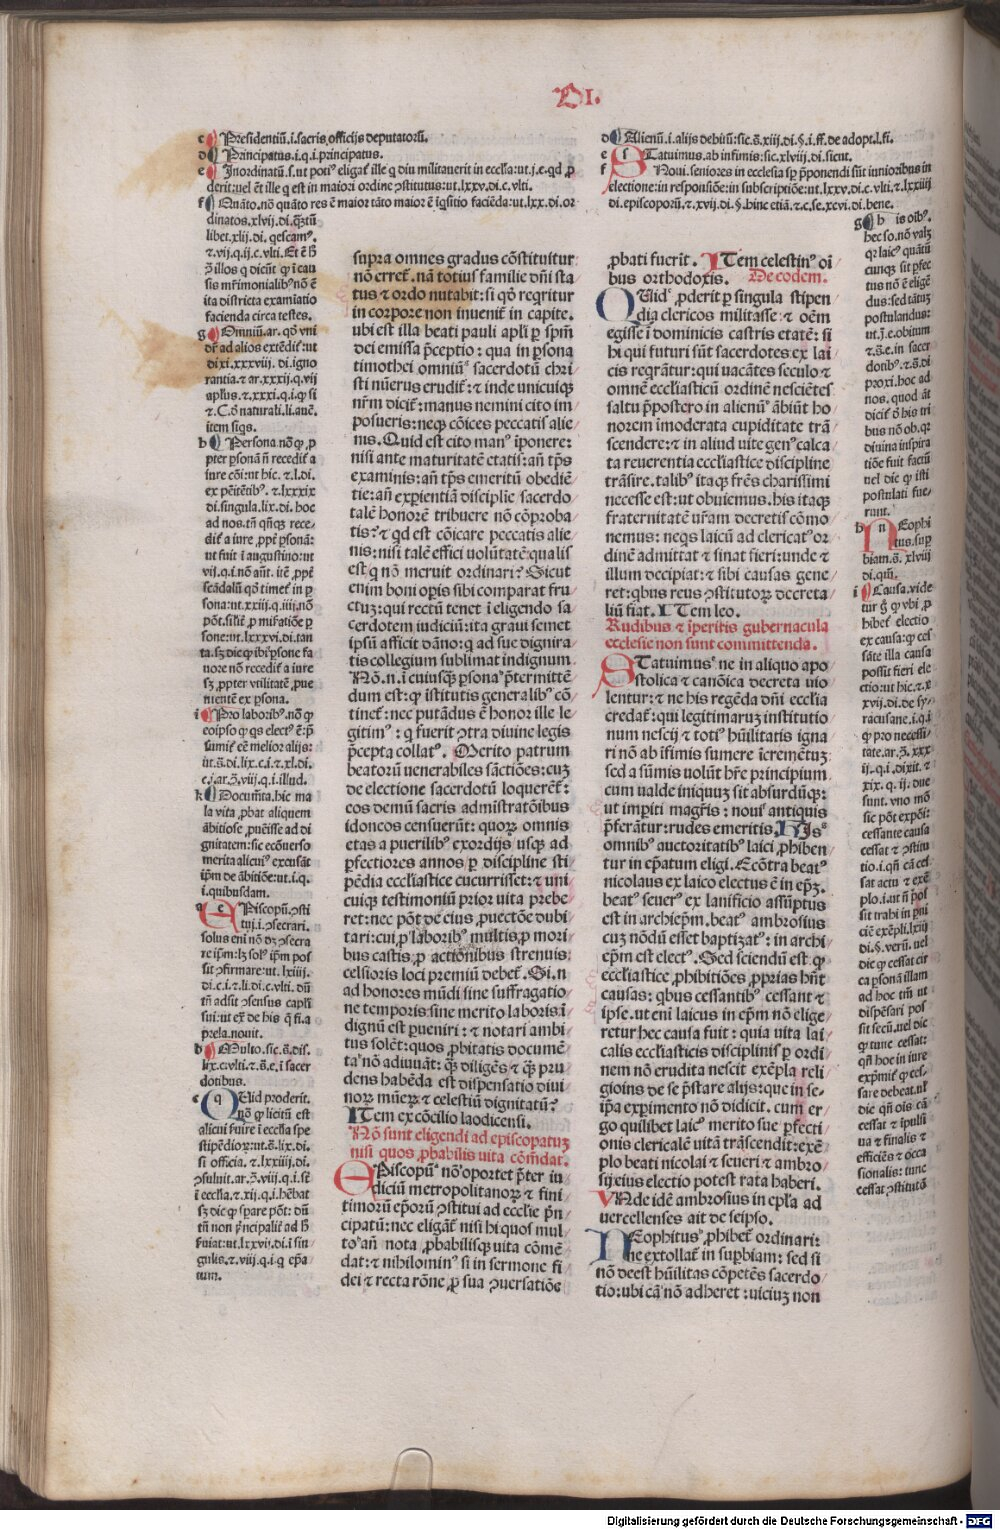 DI.
c Presidentiū.i.sacris officijs deputatorū.
d Principatus.i.q.i.principatus.
e Inordinatū.s.ut poti⁹ eligat̄ ille q diu militauerit in eccl̄ia:ut.j.e.qd ꝓ
derit:uel ēt ille q est in maiori ordine ↄstitutus:ut.lxxv.di.c.vlti.
f Quāto.nō quāto res ē maior tāto maior ē īq̄sitio faciēda:ut.lxx.di.or
dinatos.xlvij.di.q̄ztū
libet.xlij.di.qescam⁹.
⁊.vij.q.ij.c.vlti.Et ē h̄
ꝯ illos q dicūt qꝫ i cau
sis m̄rimonialib⁹ nō ē
ita districta examiatio
facienda circa testes.
g Omniū.ar.qꝫ vni
di xi.xxxviij.di.igno
rantia.⁊ ar.xxxij.q.vij
apl̄us.⁊.xxxi.q.i.qꝫ si
⁊.C.ꝯ naturali.li.auē.
item siqs.
h Persona.nō qꝫ ꝓ
pter ꝑsonā n̄ recedit̄ a
iure cōi:ut hic.⁊.l.di.
ex pēitētib⁹.⁊.lxxxix
di.singula.lix.di.hoc
ad nos.tn̄ qn̄qꝫ rece-
dit̄ a iure ꝓpt̄ ꝑsonā:
ut fuit i augustino:ut
vij.q.i.nō aūt.itē ꝓpt̄
scādalū qꝫ timet̄ in ꝑ
sona:ut.xxiij.q.iiij.nō
pōt.silit̄ ꝓ mir̄atiōe ꝑ
sone:ut.lxxxvi.di.tan
ta.sꝫ dic qꝫ ib ꝑsone fa
uore nō recedit̄ a iure
sꝫ ꝓpter vtilitatē ꝓue
nientē ex ꝑsona.
i Pro laborib⁹.nō qꝫ
eoipso qꝫ qs elect⁹ ē:p̄
sumit̄ eē melior alijs:
ut.s̄.di.lix.c.i.⁊.xl.di.
c.j.ar.ꝯ.viij.q.i.illud.
k Documēta.hic ma
la vita ꝓbat aliquem
ābitiose ꝓueisse ad di
gnitatem:sic ecōuerso
merita alicui⁹ excusāt
ip̄m de ābitiōe:ut.i.q.
i.quibusdam.
a e Piscopū.ↄsti
tui.i.ↄsecrari.
solus eni nō dꝫ ↄsecra
re ip̄m:lꝫ sol⁹ ip̄m pos
sit ↄfirmare:ut.lxiiij.
di.c.i.⁊.li.di.c.vlti.dū
tn̄ adsit ↄsensus capl̄i
sui:ut ex̄ de his q fi.a
prela.nouit.
b Multo.sic.s̄.dis.
lix.c.vlti.⁊.s̄.e.i sacer
dotibus.
c q Vid proderit.
nō qꝫ licitū est
alicui ꝓuire i ecclesia spe
stipēdioꝝ:ut.s̄.lix.di.
si officia.⁊.lxxiiij.di.
ↄsuluit.ar.ꝯ.viij.q.i.sē
i eccl̄ia.⁊.xij.q.i.hēbat
sꝫ dic qꝫ spare pōt:dū
tn̄ non p̄ncipalit̄ ad h̄
ꝓuiat:ut.lxxvij.di.i sin
gulis.⁊.viij.q.i.q ep̄a
tum.
supra omnes gradus cōstituitur
nō erret̄.nā totius familie dn̄i sta
tus ⁊ ordo nutabit:si qꝫ reqritur
in corpore non inuenit̄ in capite.
ubi est illa beati pauli apl̄i ꝑ sp̄m
dei emissa p̄ceptio:qua in ꝑsona
timothei omniū sacerdotū chri
sti nūerus erudit̄:⁊ inde unicuiqꝫ
nr̄m dicit̄:manus nemini cito im
posueris:neqꝫ cōices peccatis alie
nis.Quid est cito man⁹ iponere:
nisi ante maturitatē etatis:an̄ tp̄s
examinis:an̄ tp̄s emeritū obediē
tie:an̄ exꝑientiā disciplie sacerdo
talē honorē tribuere nō cōproba
tis? ⁊ qd est cōicare peccatis alie
nis:nisi talē effici uolūtatē qualis
est q nō meruit ordinari? Sicut
enim boni oꝑis sibi comparat fru
ctuꝫ:qui rectū tenet i eligendo sa
cerdotem iudiciū:ita graui semet
ipsū afficit dāno:q ad sue dignita
tis collegium sublimat indignum.
Nō.n.i cuiusqꝫ ꝑsona p̄termittē
dum est:qꝫ istitutis generalib⁹ cō
tinet̄:nec putādus ē honor ille le
gitim⁹:q fuerit ↄtra diuine legis
p̄cepta collat⁹.Merito patrum
beatorū uenerabiles sāctiōes:cuꝫ
de electione sacerdotū loquerēt̄:
eos demū sacris admistratōibus
idoneos censuerūt:quoꝝ omnis
etas a puerilib⁹ exordijs usqꝫ ad
ꝑfectiores annos ꝑ discipline sti
pēdia eccl̄iastice cucurrisset:⁊ uni
cuiqꝫ testimoniū prior uita prebe
ret:nec pōt de eius ꝓuectōe dubi
tari:cui ꝓ laborib⁹ multis ꝓ mori
bus castis ꝓ actionibus strenuis
celsioris loci premiū debet̄.Si.n
ad honores mūdi sine suffragatio
ne temporis:sine merito laboris i
dignū est ꝑueniri:⁊ notari ambi
tus solēt:quos ꝓbitatis documē
ta nō adiuuāt:q̄ꝫ diligēs ⁊ q̄ꝫ pru
dens habēda est dispensatio diui
noꝝ mūerꝝ ⁊ celestiū dignitatū?
ITem ex cōcilio laodicensi.
Nō sunt eligendi ad episcopatuꝫ
nisi quos ꝓbabilis uita cōm̄dat.
EPiscopū nō oportet p̄ter iu
diciū metropolitanoꝝ ⁊ fini
timorū ep̄orū ↄstitui ad eccl̄ie p̄n
cipatū:nec eligāt̄ nisi hi quos mul
to an̄ nota ꝓbabilisqꝫ uita cōmē
dat:⁊ nihilomin⁹ si in sermone fi
dei ⁊ recta rōne ꝑ sua ↄuersatiōe
d Alienū.i.alijs debitū:sic.s̄.xiii.di.§.i.ff.de adopt.l.fi.
e s Tatuimus.ab infimis:sic.xlviii.di.sicut.
f Noui.seniores in ecclesia sꝑ p̄ponendi sūt iunioribus in
electione:in responsiōe:in subscriptiōe:ut.lxxv.di.c.vlti.⁊.lxxiiij
di.episcoporū.⁊.xvij.di.§.hinc etiā.⁊.c.se.xcvi.di.bene.
ꝓbati fuerit.ITem celestin⁹ oi
bus orthodoxis. De eodem.
QVid ꝓderit ꝑ singula stipen
dia clericos militasse:⁊ oēm
egisse i dominicis castris etatē:si
hi qui futuri sūt sacerdotes ex lai
cis reqrātur:qui uacātes seculo ⁊
omnē eccl̄iasticū ordinē nesciētes
saltu p̄postero in alienū ābiūt ho
norem imoderata cupiditate trā
scendere:⁊ in aliud uite gen⁹ calca
ta reuerentia eccl̄iastice discipline
trāsire.talib⁹ itaqꝫ fr̄es charissimi
necesse est:ut obuiemus.his itaqꝫ
fraternitatē ur̄am decretis cōmo
nemus:neqs laicū ad clericat⁹ or
dinē admittat ⁊ sinat fieri:unde ⁊
illum decipiat:⁊ sibi causas gene
ret:qbus reus ↄstitutoꝝ decreta
liū fiat.ITem leo.
Rudibus ⁊ iperitis gubernacula
ecclesie non sunt committenda.
STatuimus ne in aliquo apo
stolica ⁊ canōica decreta uio
lentur:⁊ ne his regēda dn̄i eccl̄ia
credat̄:qui legitimaruꝫ institutio
num nescij ⁊ toti⁹ hūilitatis igna
ri nō ab ifimis sumere icremētuꝫ
sed a sūmis uolūt hr̄e principium
cum ualde iniquuꝫ sit absurdūqꝫ:
ut impiti magr̄is:noui antiquis
p̄ferātur:rudes emeritis.His
omnib⁹ auctoritatib⁹ laici ꝓhiben
tur in ep̄atum eligi.Ecōtra beat⁹
nicolaus ex laico electus ē in ep̄ꝫ.
beat⁹ seuer⁹ ex lanificio assūptus
est in archiep̄m.beat⁹ ambrosius
cuꝫ nōdū esset baptizat⁹:in archi
ep̄m est elect⁹.Sed sciendū est qꝫ
eccl̄iastice ꝓhibitiōes ꝓprias hn̄t
causas:qbus cessantib⁹ cessant ⁊
ipse.ut eni laicus in ep̄m nō elige
retur hec causa fuit:quia uita lai
calis eccl̄iasticis disciplinis ꝑ ordi
nem nō erudita nescit exēpla reli
gionis de se p̄stare alijs:que in se-
ip̄a exꝑimento nō didicit.cum er
go quilibet laic⁹ merito sue ꝑfecti
onis clericalē uitā trāscendit:exē
plo beati nicolai ⁊ seueri ⁊ ambro
sij eius electio potest rata haberi.
VNde idē ambrosius in ep̄l̄a ad
uercellenses ait de seipso.
NEophitus ꝓhibet̄ ordinari:
ne extollat̄ in suꝑbiam:sed si
nō deest hūilitas cōpetēs sacerdo
tio:ubi cā nō adheret:uiciuꝫ non
g h is oib⁹.
hec so.nō valꝫ
qꝛ laic⁹ quātū
cunqꝫ sit ꝑfec
tus nō ē eligē
dus:sed tātuꝫ
postulandus:
ut.j.e.obitum
⁊.s̄.e.in sacer
dotib⁹.⁊.s̄.di
proxi.hoc ad
nos.quod āt
dicit̄ ꝯ his tri
bus nō ob.qꝛ
diuina inspira
tiōe fuit factū
uel dic qꝫ isti
postulati fue-
runt.
h n Eophi
tus.suꝑ
biam.s̄.xlviij
di.qm̄.
i Causa.vide
tur g̊ qꝫ vbi ꝓ
hibet̄ electio
ex causa:qꝫ ces
sāte illa causa
possit fieri ele
ctio:ut hic.⁊.x
xvij.di.de sy-
racusane.i.q.i
qꝫ pro necessi-
tate.ar.ꝯ.xxx
ij.q.i.dixit.⁊
xix.q.ij.due
sunt.vno mō
sic pōt expōi:
cessante causa
cessat ⁊ ↄstitu
tio.i.qn̄ cā cel
sat actu ⁊ exē
plo.i.ut n̄ pos
sit trahi in p̄ni
ciē exēpli.lxiij
di.§.verū.uel
dic qꝫ cessat cir
ca ꝑsonā illam
ad hoc tm̄ ut
dispēsari pos
sit secū.uel dic
qꝫ tunc cessat:
qn̄ hoc in iure
exp̄mit̄ qꝫ ces-
sare debeat.ul̄
dic qn̄ ois cā
cessat ⁊ ipulsi
ua ⁊ finalis ⁊
efficiēs ⁊ occa
sionalis:tunc
cessat ↄstitutō
Digitalisierung gefördert durch die Deutsche Forschungsgemeinschaft - DFG